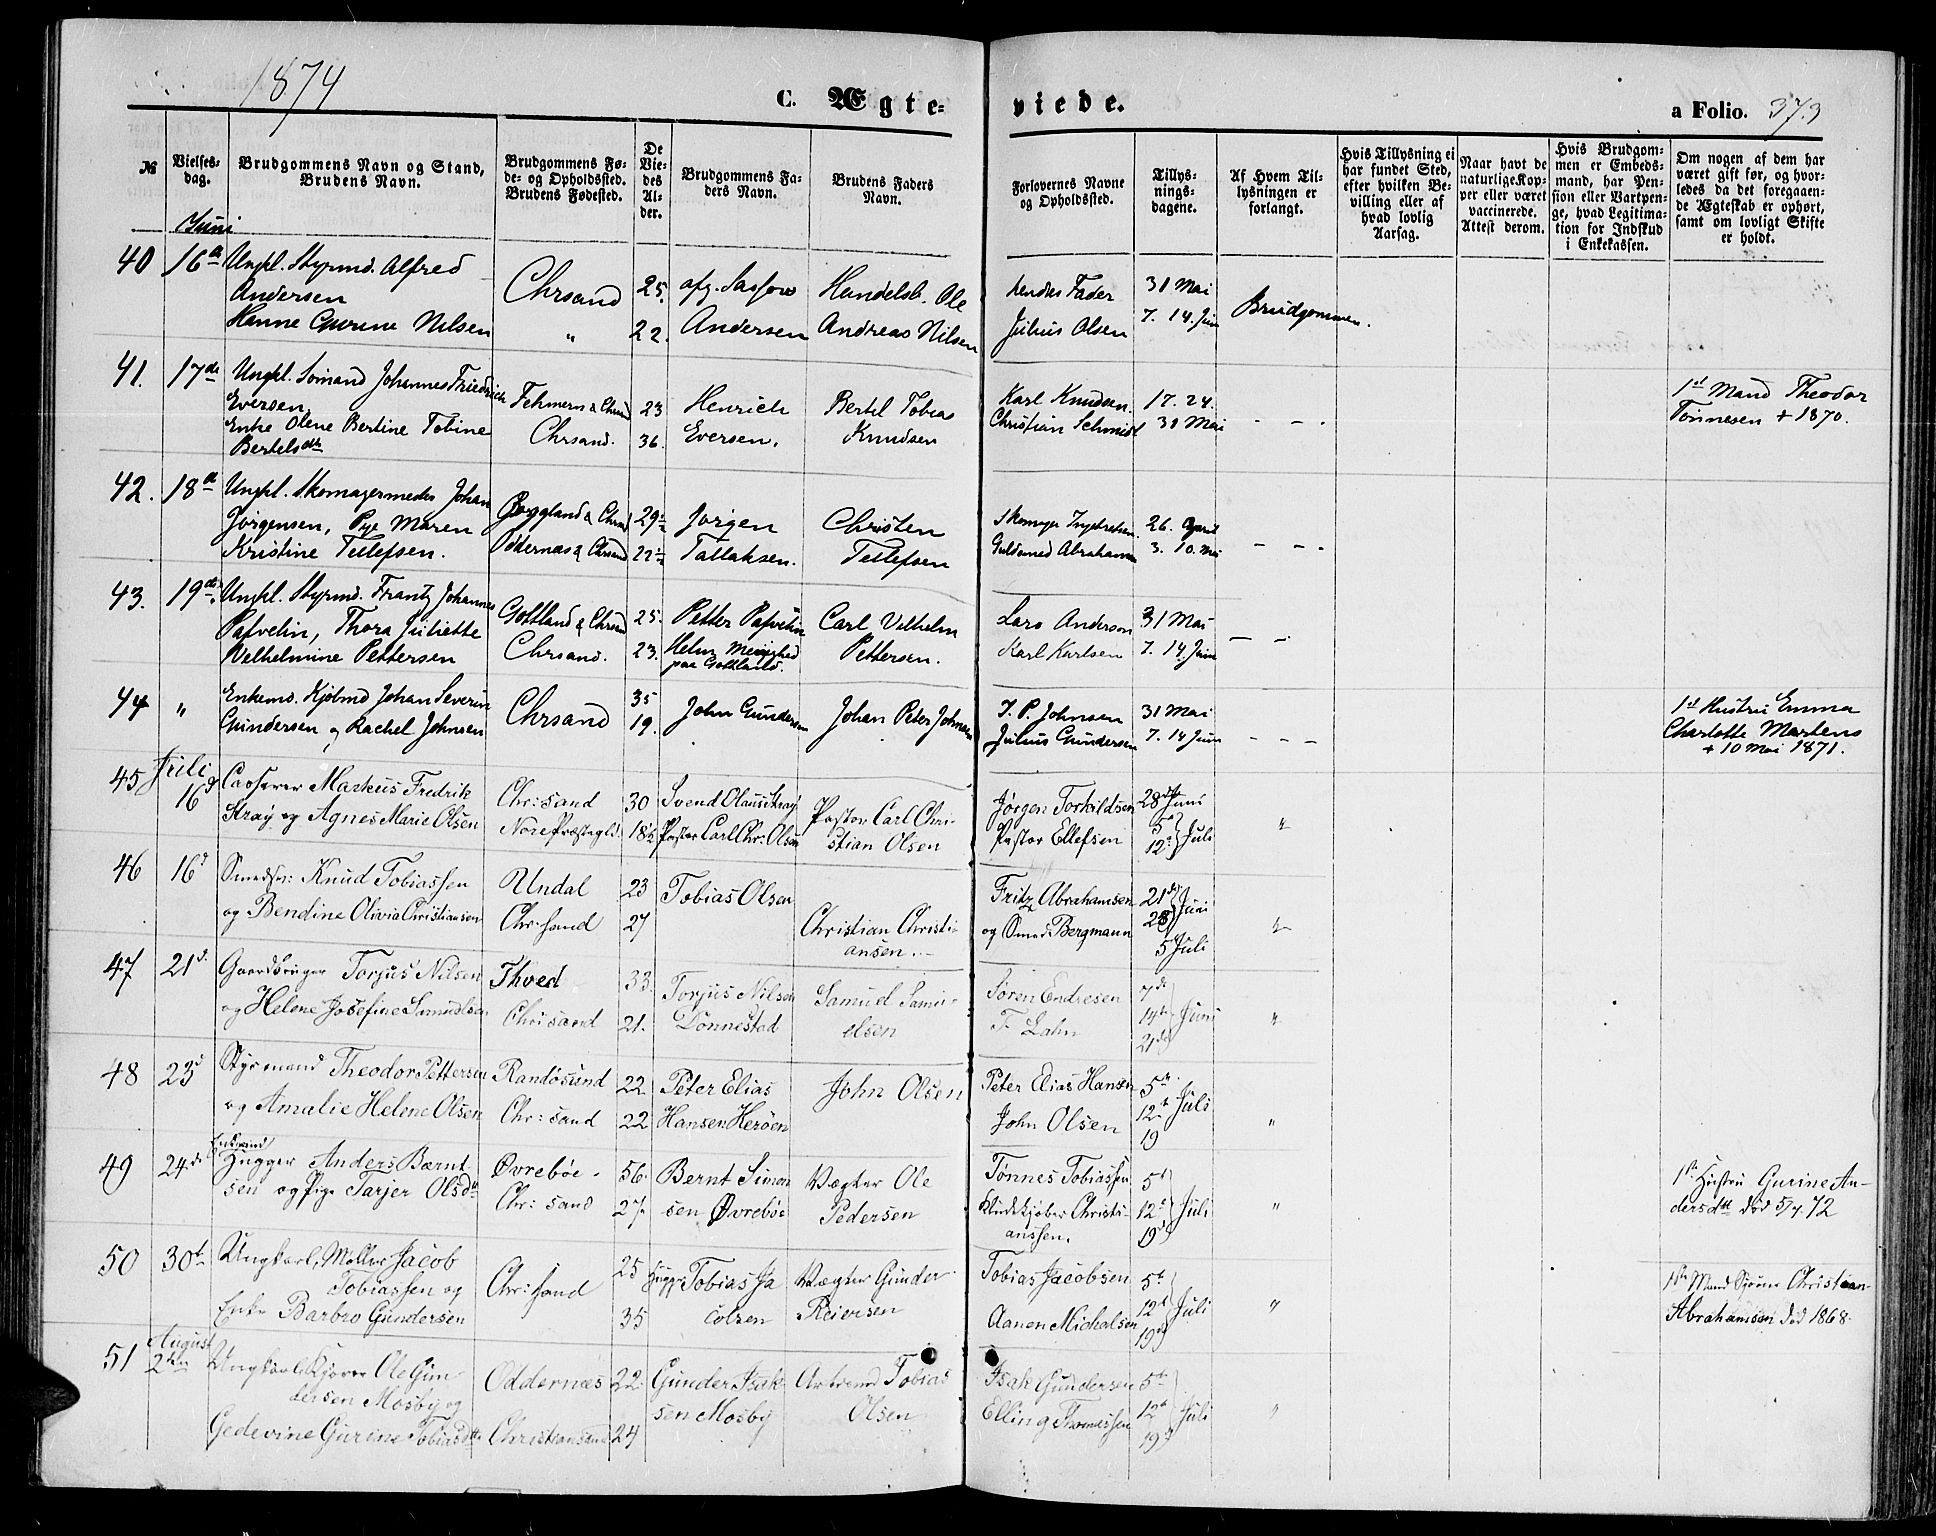 1874
C. Ægte-
viede.
a Folio. 373
№
Vielses-
dag.
Brudgommens Navn og Stand,
Brudens Navn.
Brudgommens Fø-
de- og Opholdssted.
Brudens Fødested.
De
Vie-
des
Al-
der.
Brudgommens Fa-
ders Navn.
Brudens Faders
Navn.
Forlovernes Navne
og Opholdssted.
Tillys-
nings-
dagene.
Af Hvem Til-
lysningen er
forlangt.
Hvis Tillysning ei
har fundet Sted,
efter hvilken Be-
villing eller af
hvad lovlig
Aarsag.
Naar havt de
naturlige Kop-
per eller været
vaccinerede.
Attest derom.
Hvis Brudgom-
men er Embeds-
mand, har Pen-
sion eller Vartpen-
ge, hvad Legitima-
tion for Indskud
i Enkekassen.
Om nogen af dem har
været gift før, og hvor-
ledes da det foregaaen-
de Ægteskab er ophørt,
samt om lovligt Skifte
er holdt.
Juni
40 16de Ungkl. Styrmd. Alfred
Andersen
Hanne Gurine Nilsen
Chrsand
"
25.
22.
Andersen
Handelsb. Ole
Andreas Nilsen
hendes Fader
Julius Olsen
31 Mai
7. 14. Juni
Brudgommen.
41. 17de Ungkl. Sømand Johannes Friedrich
Eversen,
Enke Olene Bertine Tobine
Bertelsdtr
Fehmern & Chrsand
Chrsand.
23
36.
Henrich
Eversen.
Bertel Tobias
Knudsen
Karl Knudsen.
Christian Schmidt
17. 24.
31 Mai
- - -
1st Mand Theodor
Tønnesen + 1870.
42. 18de Ungkl. Skomagermester Johan
Jörgensen, Pige Maren
Kristine Tellefsen.
& Chrsand
Oddernæs & Chrsand
29½
22½
Jörgen
Tallaksen.
Christen
Tellefsen
Skomager
Guldsmed Abrahamsen
26. April
3. 10. Mai
- - -
43. 19de Ungkl. Styrmd. Frantz Johannes
Pafvelin, Thora Juliette
Wilhelmine Pettersen
Gottland & Chrsand
Chrsand.
25.
23.
Petter Pafvelin
Helm Menighed
paa Gottland.
Carl Vilhelm
Pettersen.
Lars Anderson
Karl Karlsen
31 Mai
7. 14. Juni
- -
44 " Enkemd. Kjöbmd Johan Severin
Gundersen og Rachel Johnsen
Chrsand
35
19.
John Gundersen
Johan Peter Johnsen
J. P. Johnsen
Julius Gundersen
31 Mai
7. 14 Juni
- - -
1st Hustru Emma
Charlotte Martens
+ 10 Mai 1871.
Juli
45 16d Casserer Markus Fredrik
Stray og Agnes Marie Olsen
Chr:sand
Nore Præstegld.
30
18½
Svend Olaus Stray
Pastor Carl Chr: Olsen
Pastor Carl Chri-
stian Olsen
Jørgen Torkildsen
Pastor Ellefsen
28de Juni
5d
12d Juli
"
46 16d Smedsv: Knud Tobiassen
og Bendine Olivia Christiansen
Undal
Chr:sand
23
27
Tobias Olsen
Christian Christi-
ansen.
Fritz Abrahamsen
og Smed Bergmann
21de
28 Juni
5 Juli
"
47 21d. Gaardbruger Torjus Nilsen
og Helene Josefine Samuelsen
Thved
Chrisand
33
21.
Torjus Nilsen
Dönnestad
Samuel Samu-
elsen
Søren Endresen
F. Lahn
7de
14de Juni
21de
"
48 23d Styrmand Theodor Pettersen
og Amalie Helene Olsen
Randösund
Chr:sand
22
22
Peter Elias
Hansen Herøen
John Olsen
Peter Elias Hansen
John Olsen
5te
12te Juli
19
"
49 24de Enkemand
Hugger Anders Bærnt
sen og Pige Tarjer Olsdtr
Øvrebøe.
Chr:sand
56.
27.
Bernt Simon
sen Øvrebøe
Vægter Ole
Pedersen
Tønnes Tobiassen
Christi-
anssen.
5t
12t Juli
19d
"
1ste Hustru Gurine An-
dersdtt död 5/4.72
50 30te Ungkarl, Møller Jacob
Tobiassen og
Enke Barbro Gundersen
Chr:sand
25
35
Hugger Tobias Ja
cobsen
Vægter Gunder
Reiersen
Tobias Jacobsen
Aanen Michalsen
5t
12t Juli
19d
"
1ste Mand Sjöm: Christian
Abrahamsen död 1868.
August
51 2den Ungkarl Kjører Ole Gun
dersen Mosby og
Gedevine Gurine Tobiasdtt
Oddernæs
Christiansand
22
24
Gunder Isak
sen Mosby
Tobias
Olsen
Isak Gundersen
Elling Thomassen
5te
12t Juli
19d
"